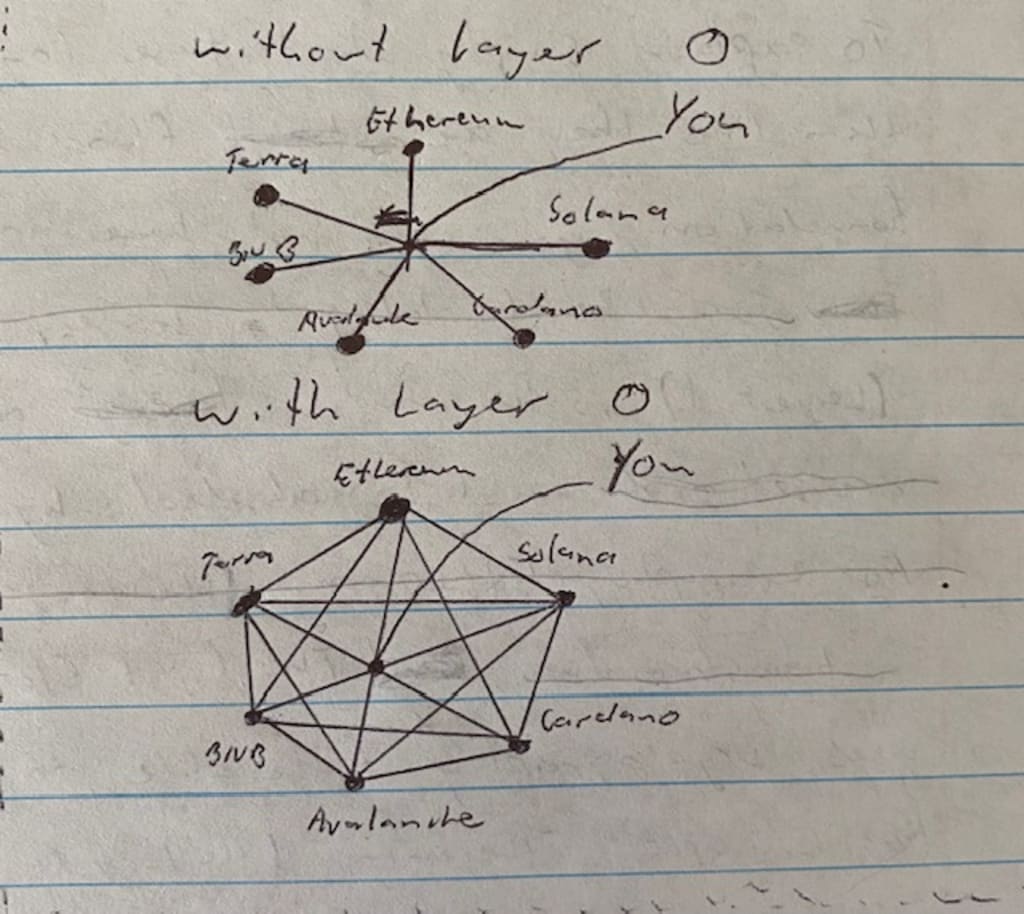 without Layer 0
Ethereum
You
Terra
Solana
BNB
Avalanche
Cardano
with Layer 0
Ethereum
You
Terra
Solana
BNB
Cardano
Avalanche